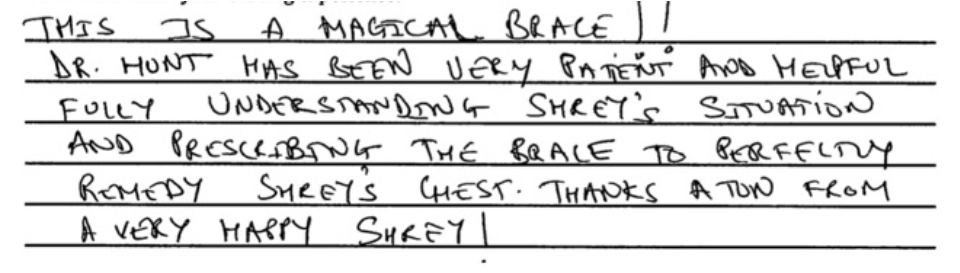 THIS IS A MAGICAL BRACE !!
DR. HUNT HAS BEEN VERY PATIENT AND HELPFUL
FULLY UNDERSTANDING SHREY'S SITUATION
AND PRESCRIBING THE BRACE TO PERFECTLY
REMEDY SHREY'S CHEST. THANKS A TON FROM
A VERY HAPPY SHREY!